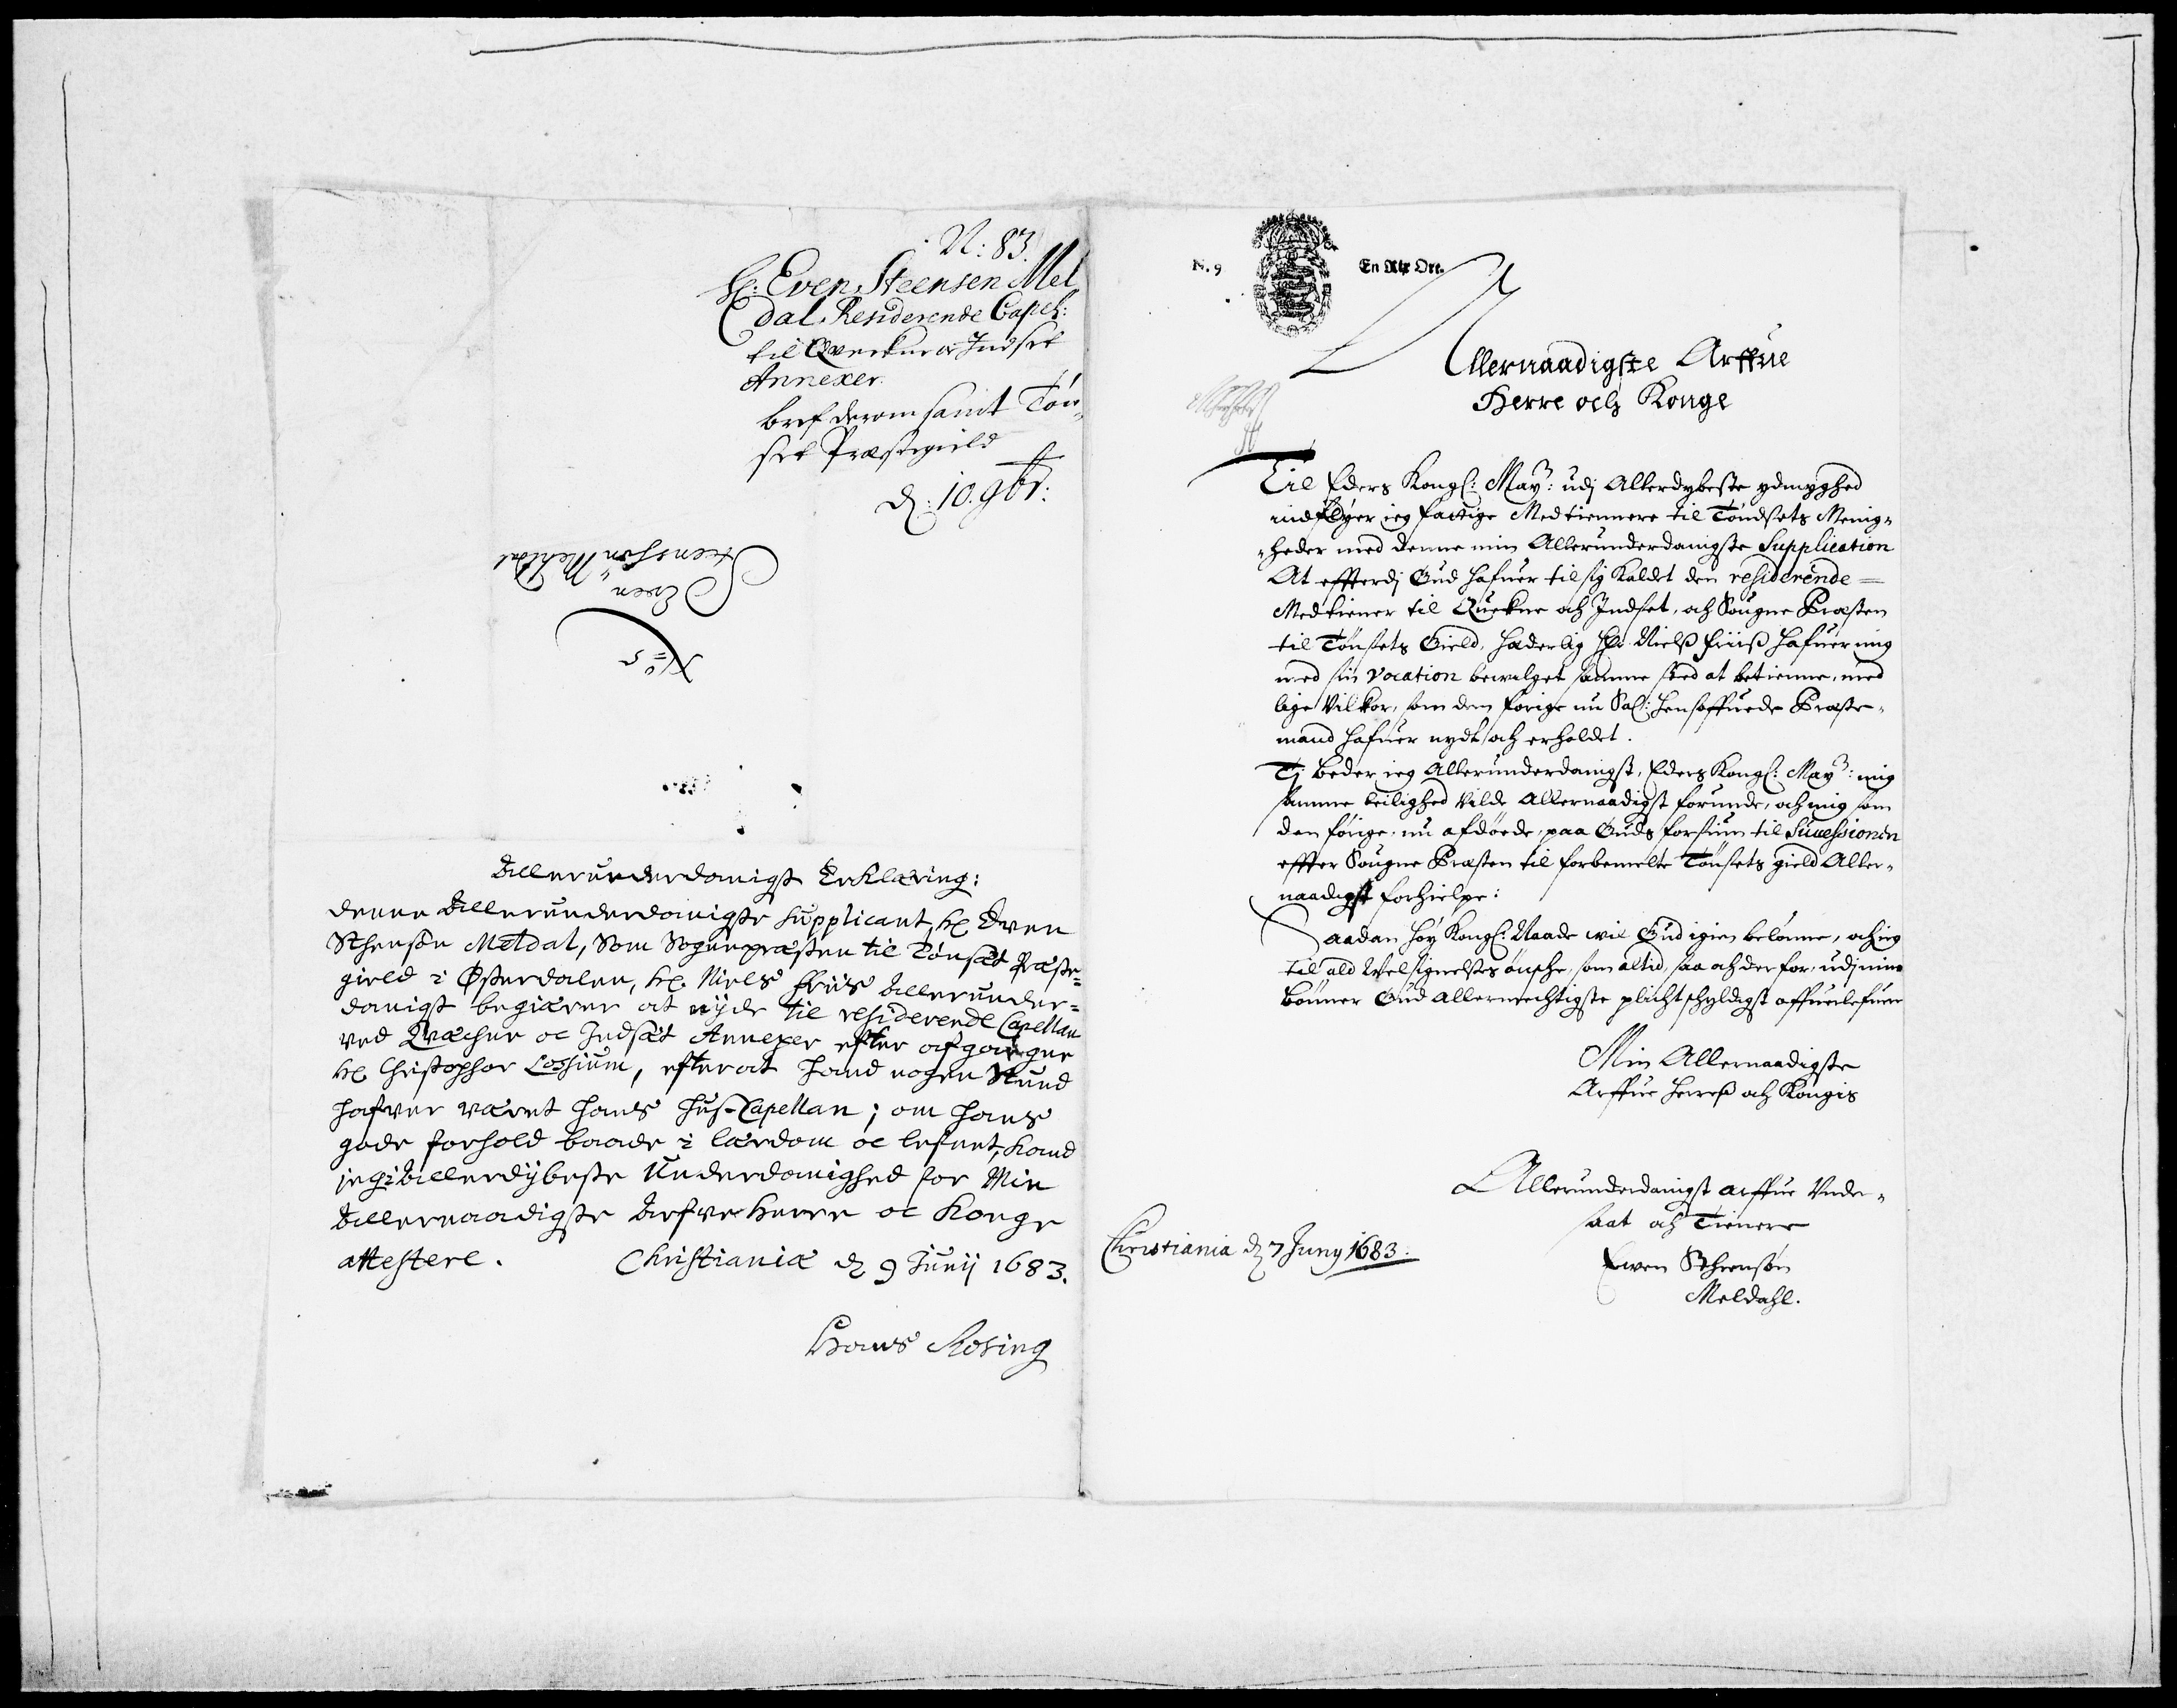 N: 83.
Hr: Even Steensen Mel
dal Residerende Capel:
til Qverkne oc Indset
Annexer
bref derom samt Tön,
set Præstegield
d: 10. 9br:
No= 5
Even
Steensøn Meldal
Allerunderdanigst Erklæring:
Denne Allerunderdanigste Supplicant, Hr Even
Sthensøn Meldal, Som Sognepræsten til Tønsæt Præste-
gield i Østerdalen, Hr. Niels Friis Allerunder-
danigst begiærer at nyde til residerende Capellan
ved Qvæchne oc Indsæt Annexer efter afgangne
Hr Christopher Lossium, efter at hand nogen Stund
hafver været hans Hus-Capellan; om hans
gode forhold baade i lærdom oc lefnet, kand
jeg i Allerdybeste Underdanighed for Min
Allernaadigste Arfve Herre oc Konge
attestere. Christianiæ d 9 Junij 1683.
Hans Rosing
N. 9
En Rix Ort.
Allernaadigste Arffue
Herre och Konge
Til Eders Kongl: Mayt: udj Allerdybeste ydmyghed
indflyer ieg fattige Medtiennere til Tøndsets Menig-
-heder med denne min Allerunderdanigste Supplication
At effterdj Gud hafuer til sig kaldet den residerende
Medtiener til Quekne och Indset, och Sougne Præsten
til Tønsets Gield, hæderlig Hr Nielss Friiss hafuer mig
med sin Vocation bewilget samme sted at betienne, med
lige Vilkor, som den forige nu Sal: hensoffuede Præste-
mand hafuer nydt och erholdet.
Tj beder ieg Allerunderdanigst, Eders Kongl: Mayt: mig
samme leilighed vilde Allernaadigst forunde, och mig som
den førige nu afdøede, paa Guds forsiun til Successionen
effter Sougne Præsten til forbemelte Tønsets gield Aller-
naadigst forhielpe:
Saadan høy Kongl: Naade wil Gud igien belønne, och ieg
til ald Velsignelses ønsche, som altid, saa och der for, udj mine
bønner Gud allermechtigste plicht schyldigst affuerlefuere
Min Allernaadigste
Arffue Herress och Kongis
Allerunderdanigst arffue Unde-
saat och Tienere
Ewen Stheensøn
Meldahl.
Christiania d 7 Juny 1683: